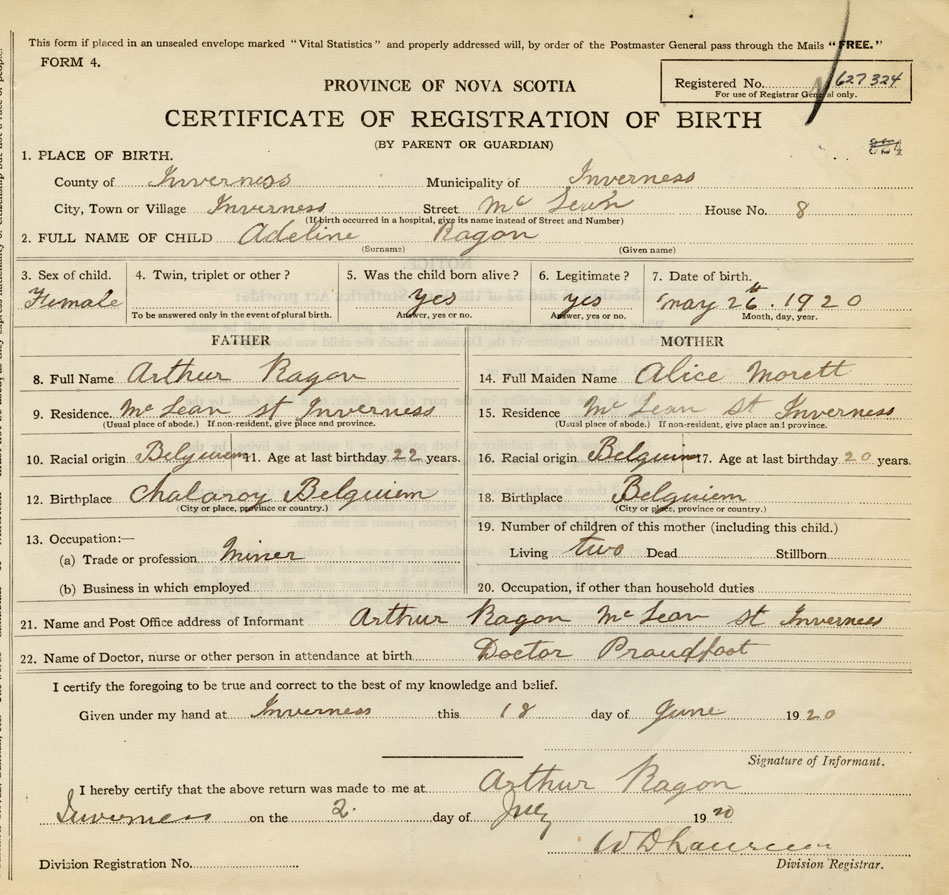 This form if placed in an unsealed envelope marked "Vital Statistics" and properly addressed will, by order of the Postmaster General pass through the Mails "FREE."
FORM 4.
Registered No. 627324
For use of Registrar General only.
PROVINCE OF NOVA SCOTIA
CERTIFICATE OF REGISTRATION OF BIRTH
(BY PARENT OR GUARDIAN)
1. PLACE OF BIRTH.
County of Inverness Municipality of Inverness
City, Town or Village Inverness Street Mc Lean House No. 8
(If birth occurred in a hospital, give its name instead of Street and Number)
2. FULL NAME OF CHILD Adeline Ragon
(Surname) (Given name)
3. Sex of child. 4. Twin, triplet or other? 5. Was the child born alive? 6. Legitimate? 7. Date of birth.
Female yes yes may 26th 1920
To be answered only in the event of plural birth. Answer, yes or no. Answer, yes or no. Month, day, year.
FATHER MOTHER
8. Full Name Arthur Ragon 14. Full Maiden Name Alice Morett
9. Residence. Mc Lean st Inverness 15. Residence Mc Lean st Inverness
(Usual place of abode.) If non-resident, give place and province. (Usual place of abode.) If non-resident, give place and province.
10. Racial origin 11. Age at last birthday 22 years. 16. Racial origin 17. Age at last birthday 20 years.
12. Birthplace Belguiem 18. Birthplace Belguiem
(City or place, province or country.) (City or place, province or country.)
19. Number of children of this mother (including this child.)
13. Occupation:—
(a) Trade or profession Miner Living two Dead Stillborn
(b) Business in which employed 20. Occupation, if other than household duties
21. Name and Post Office address of Informant Arthur Ragon Mc Lean st Inverness
22. Name of Doctor, nurse or other person in attendance at birth Doctor Proudfoot
I certify the foregoing to be true and correct to the best of my knowledge and belief.
Given under my hand at Inverness this 18 day of June 1920
Signature of Informant.
I hereby certify that the above return was made to me at Arthur Ragon
Inverness on the 2 day of July 1920
Division Registration No. Division Registrar.